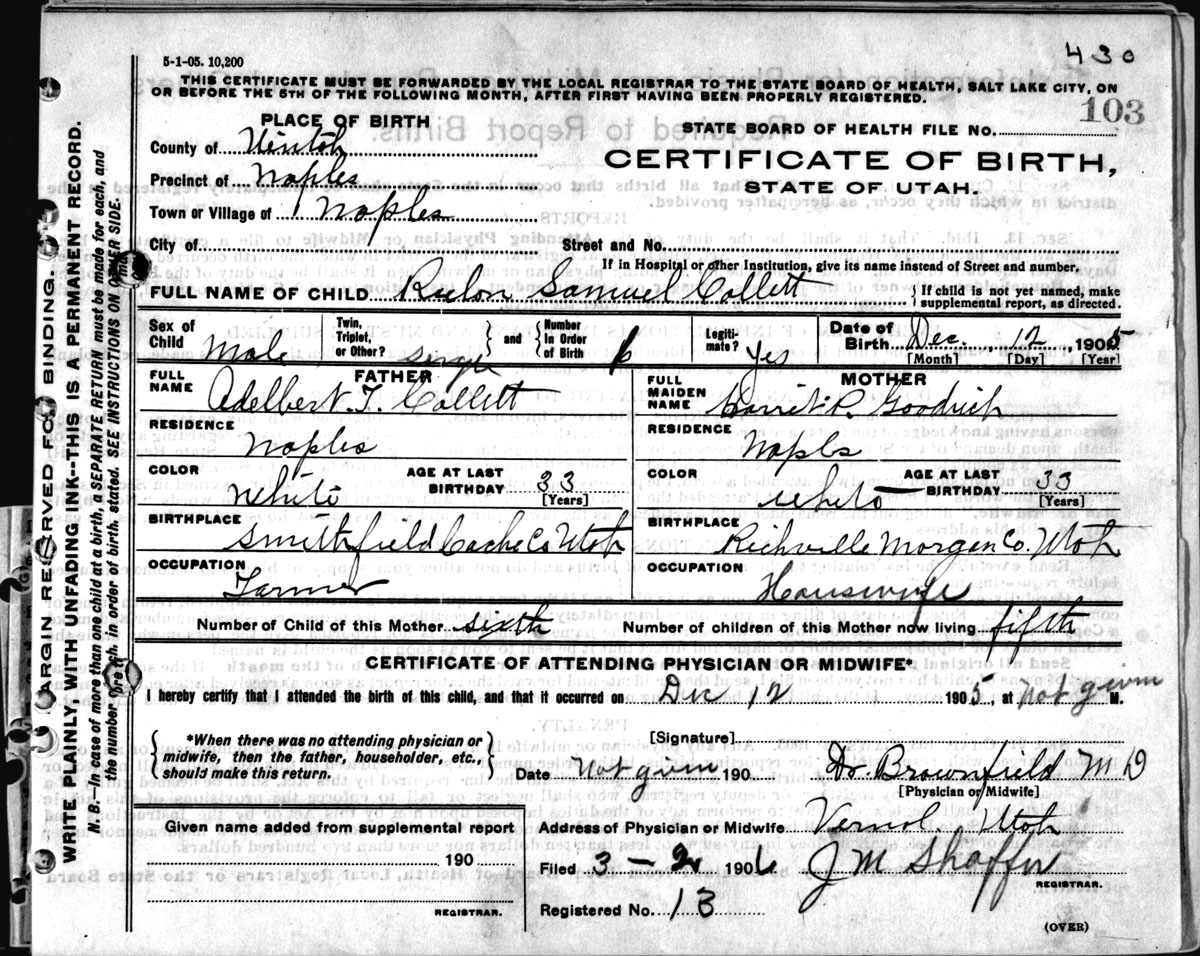 430
5-1-05. 10,200
THIS CERTIFICATE MUST BE FORWARDED BY THE LOCAL REGISTRAR TO THE STATE BOARD OF HEALTH, SALT LAKE CITY, ON
OR BEFORE THE 5TH OF THE FOLLOWING MONTH, AFTER FIRST HAVING BEEN PROPERLY REGISTERED.
103
PLACE OF BIRTH
STATE BOARD OF HEALTH FILE NO.
County of Uintah
CERTIFICATE OF BIRTH,
Precinct of Naples
STATE OF UTAH.
Town or Village of Naples
City of Street and No.
If in Hospital or other Institution, give its name instead of Street and number.
FULL NAME OF CHILD Rulon Samuel Collett { If child is not yet named, make
supplemental report, as directed.
Sex of Child Male Twin, Triplet, or Other? Single } and { Number in Order of Birth 6 Legiti-mate? Yes Date of Birth Dec. 12, 1905
[Month] [Day] [Year]
FATHER MOTHER
FULL NAME Adelbert T. Collett FULL MAIDEN NAME Harriet R. Goodrich
RESIDENCE Naples RESIDENCE Napls
COLOR White AGE AT LAST BIRTHDAY 33 [Years] COLOR White AGE AT LAST BIRTHDAY 33 [Years]
BIRTHPLACE Smithfield Cache Co Utah BIRTHPLACE Richville Morgan Co. Utah
OCCUPATION Farmer OCCUPATION Housewife
Number of Child of this Mother sixth Number of children of this Mother now living fifth
CERTIFICATE OF ATTENDING PHYSICIAN OR MIDWIFE*
I hereby certify that I attended the birth of this child, and that it occurred on Dec 12 1905, at not given M.
*When there was no attending physician or
midwife, then the father, householder, etc.,
should make this return.
[Signature]
Date Not given 190 Dr Brownfield M D
[Physician or Midwife]
Given name added from supplemental report
Address of Physician or Midwife Vernal. Utah
190
Filed 3 - 2 1906 J M Shaffer
REGISTRAR.
REGISTRAR.
Registered No. 13
(OVER)
MARGIN RESERVED FOR BINDING.
WRITE PLAINLY, WITH UNFADING INK--THIS IS A PERMANENT RECORD.
N. B.—In case of more than one child at a birth, a SEPARATE RETURN must be made for each, and
the number of each, in order of birth, stated. SEE INSTRUCTIONS ON OTHER SIDE.